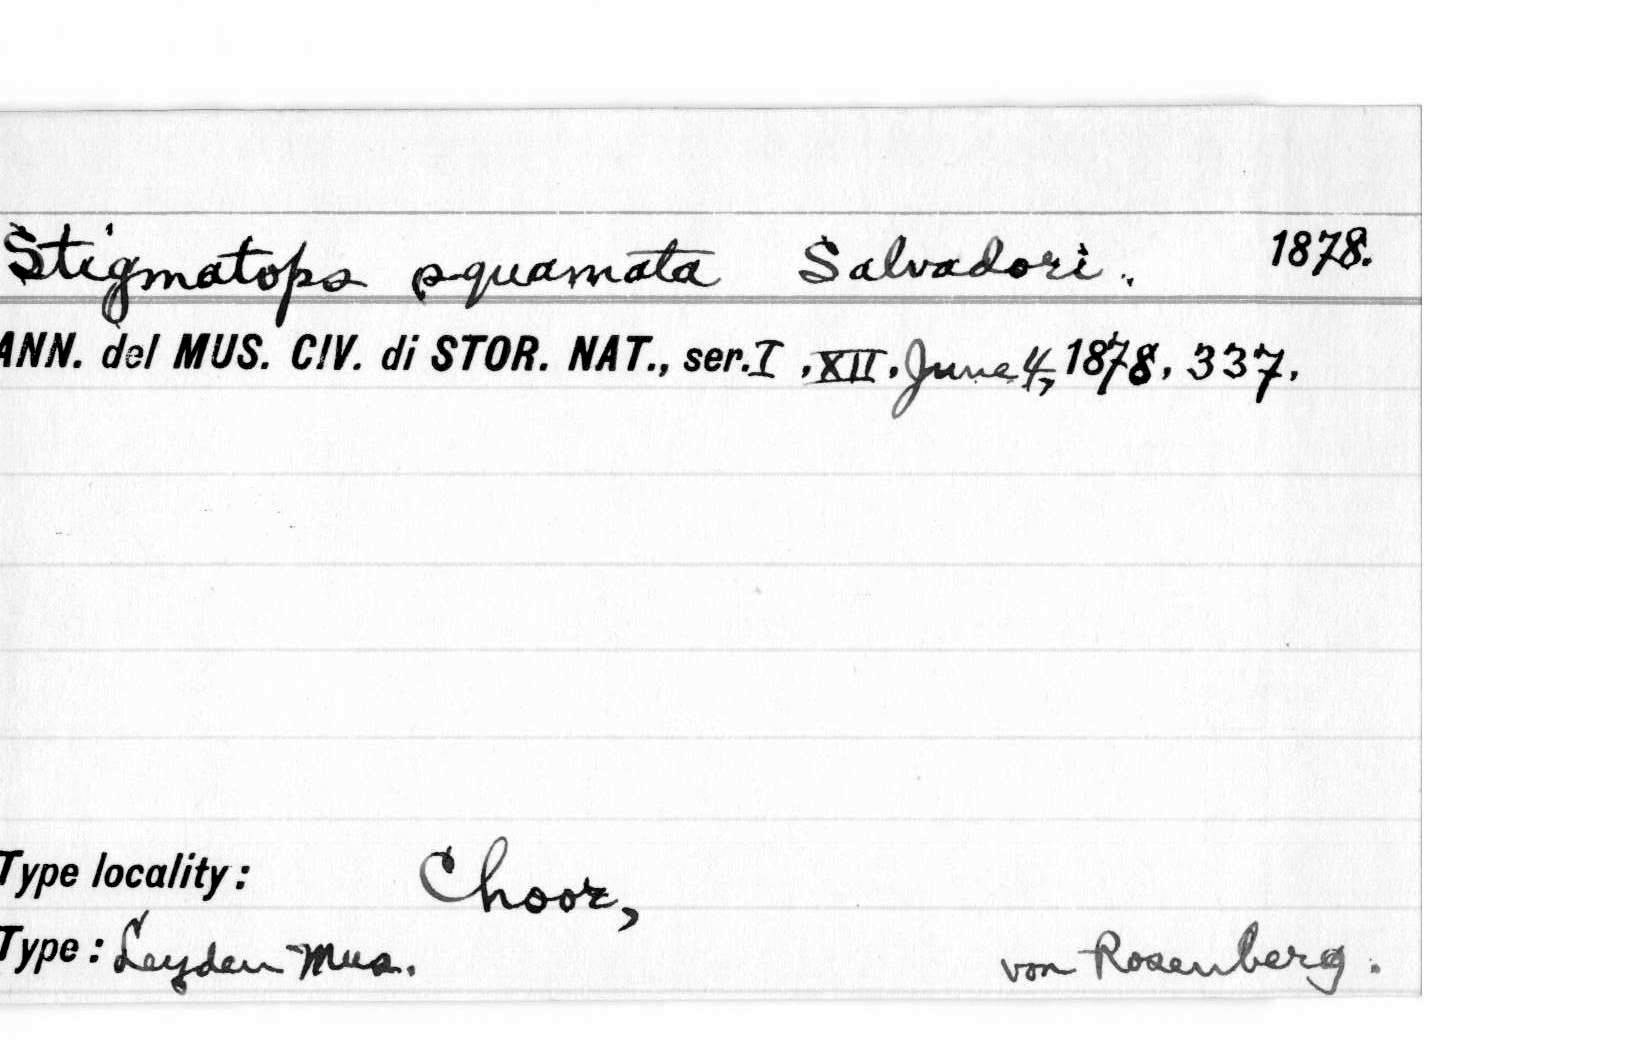 Stigmatops squamata Salvadori. 1878.
ANN. del MUS. CIV. di STOR. NAT., ser. I, XII, June 4, 1878, 337.
Type locality: Choor,
Type: Leyden Mus. von Rosenberg.